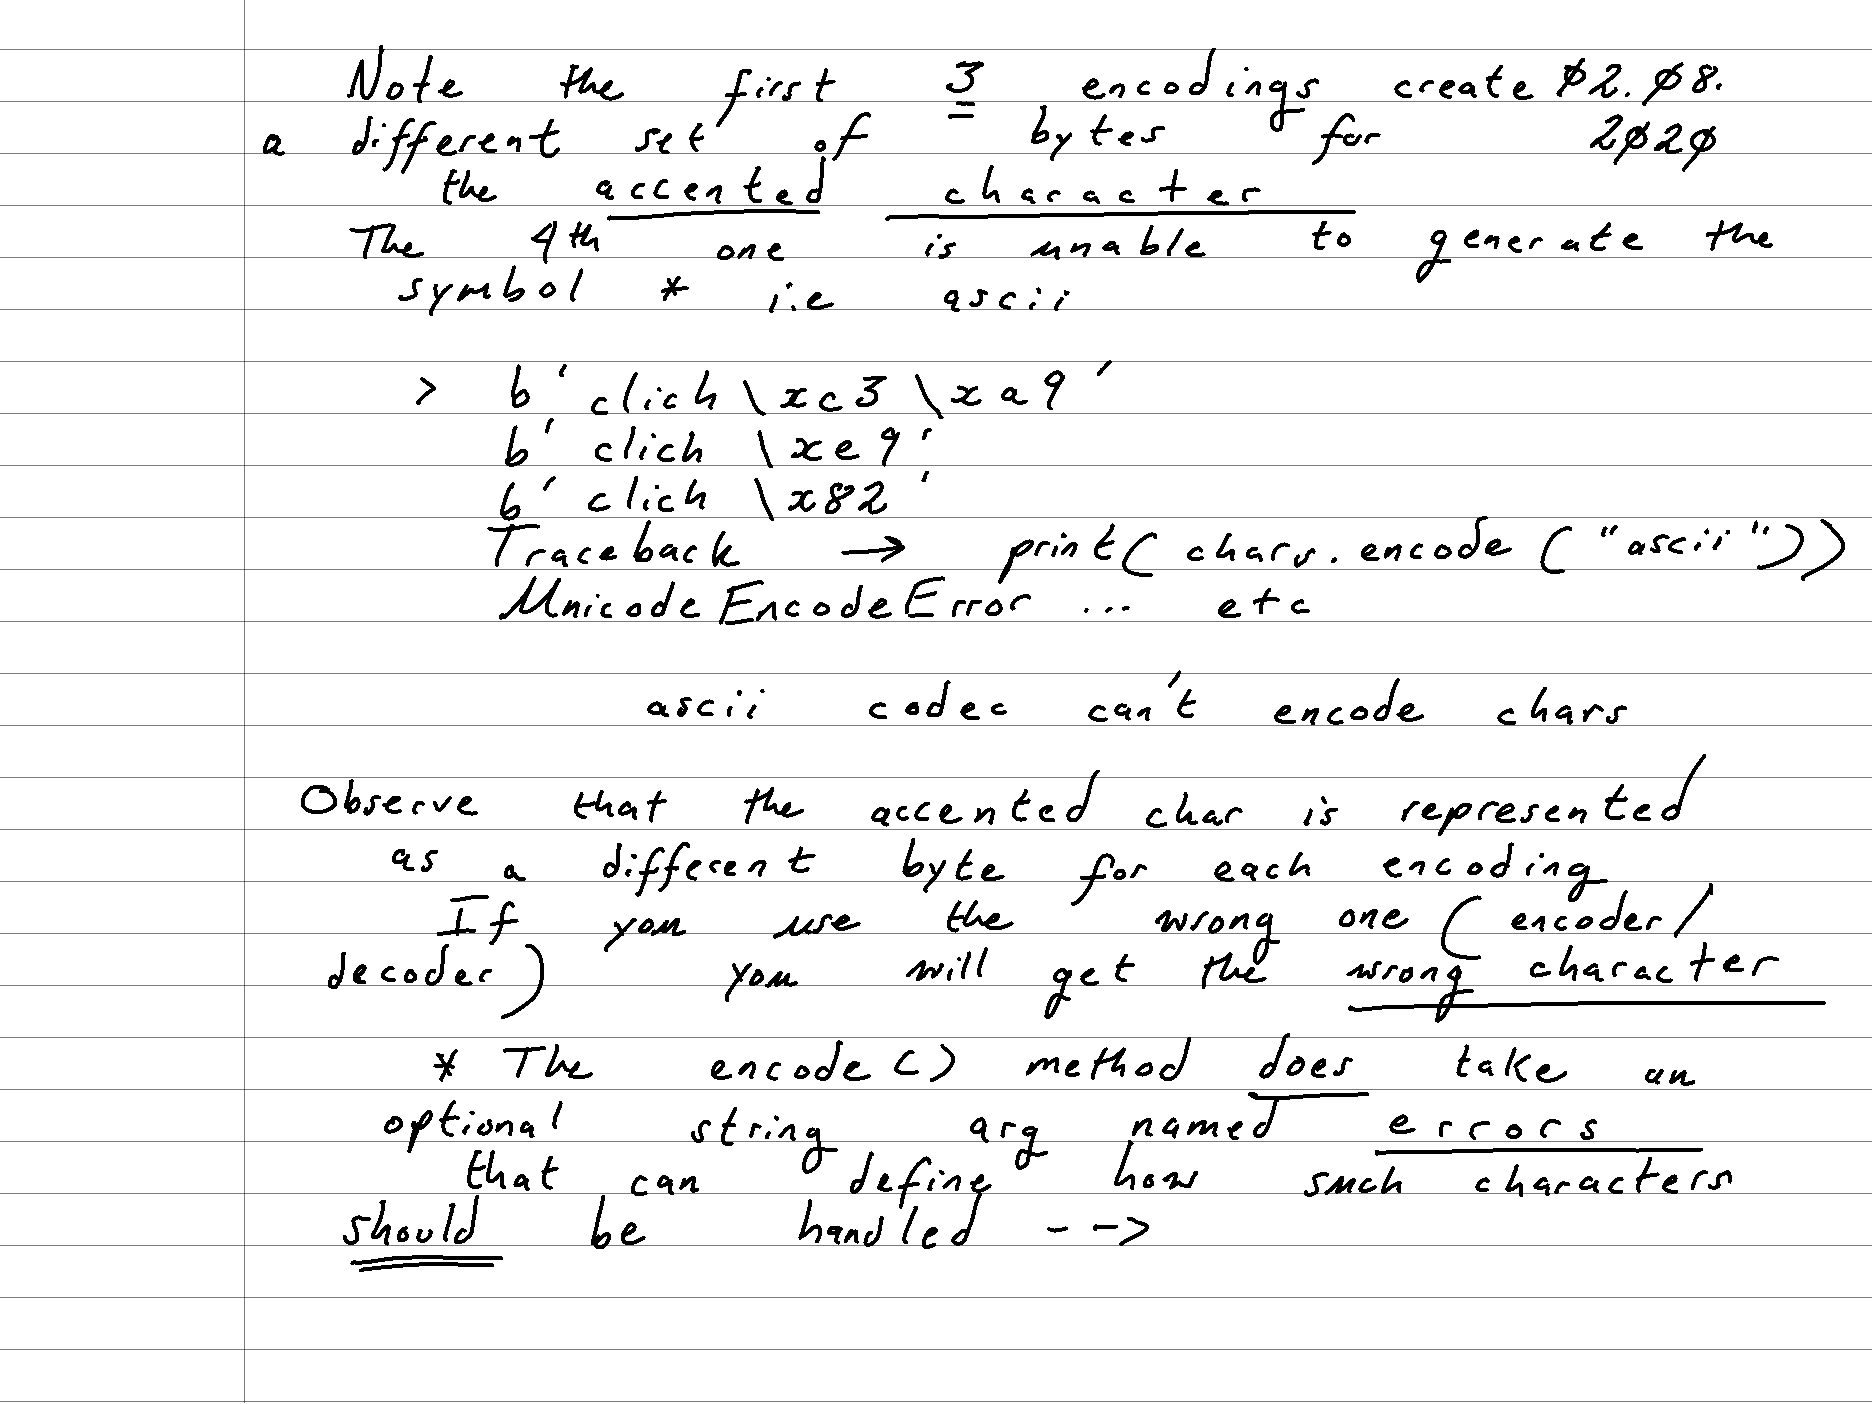 Note the first 3 encodings create 02.08.
a different set of bytes for 2020
the accented character
The 4th one is unable to generate the
symbol * i.e ascii
> b'clich\xc3\xa9'
b'clich\xe9'
b'clich\x82'
Traceback → print(chars.encode("ascii"))
UnicodeEncodeError ... etc
ascii codec can't encode chars
Observe that the accented char is represented
as a different byte for each encoding
If you use the wrong one (encoder/
decoder) you will get the wrong character
* The encode() method does take an
optional string arg named errors
that can define how such characters
should be handled -->